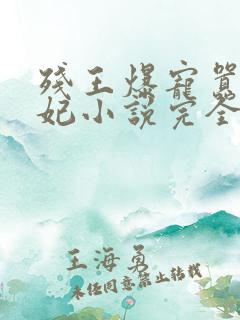 残王爆寵嚣
妃小説完全
王海勇
未经同意禁止转载